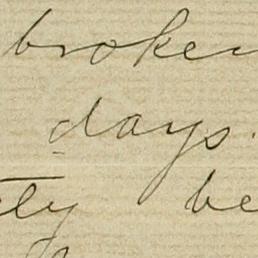 broken
days.
ty be